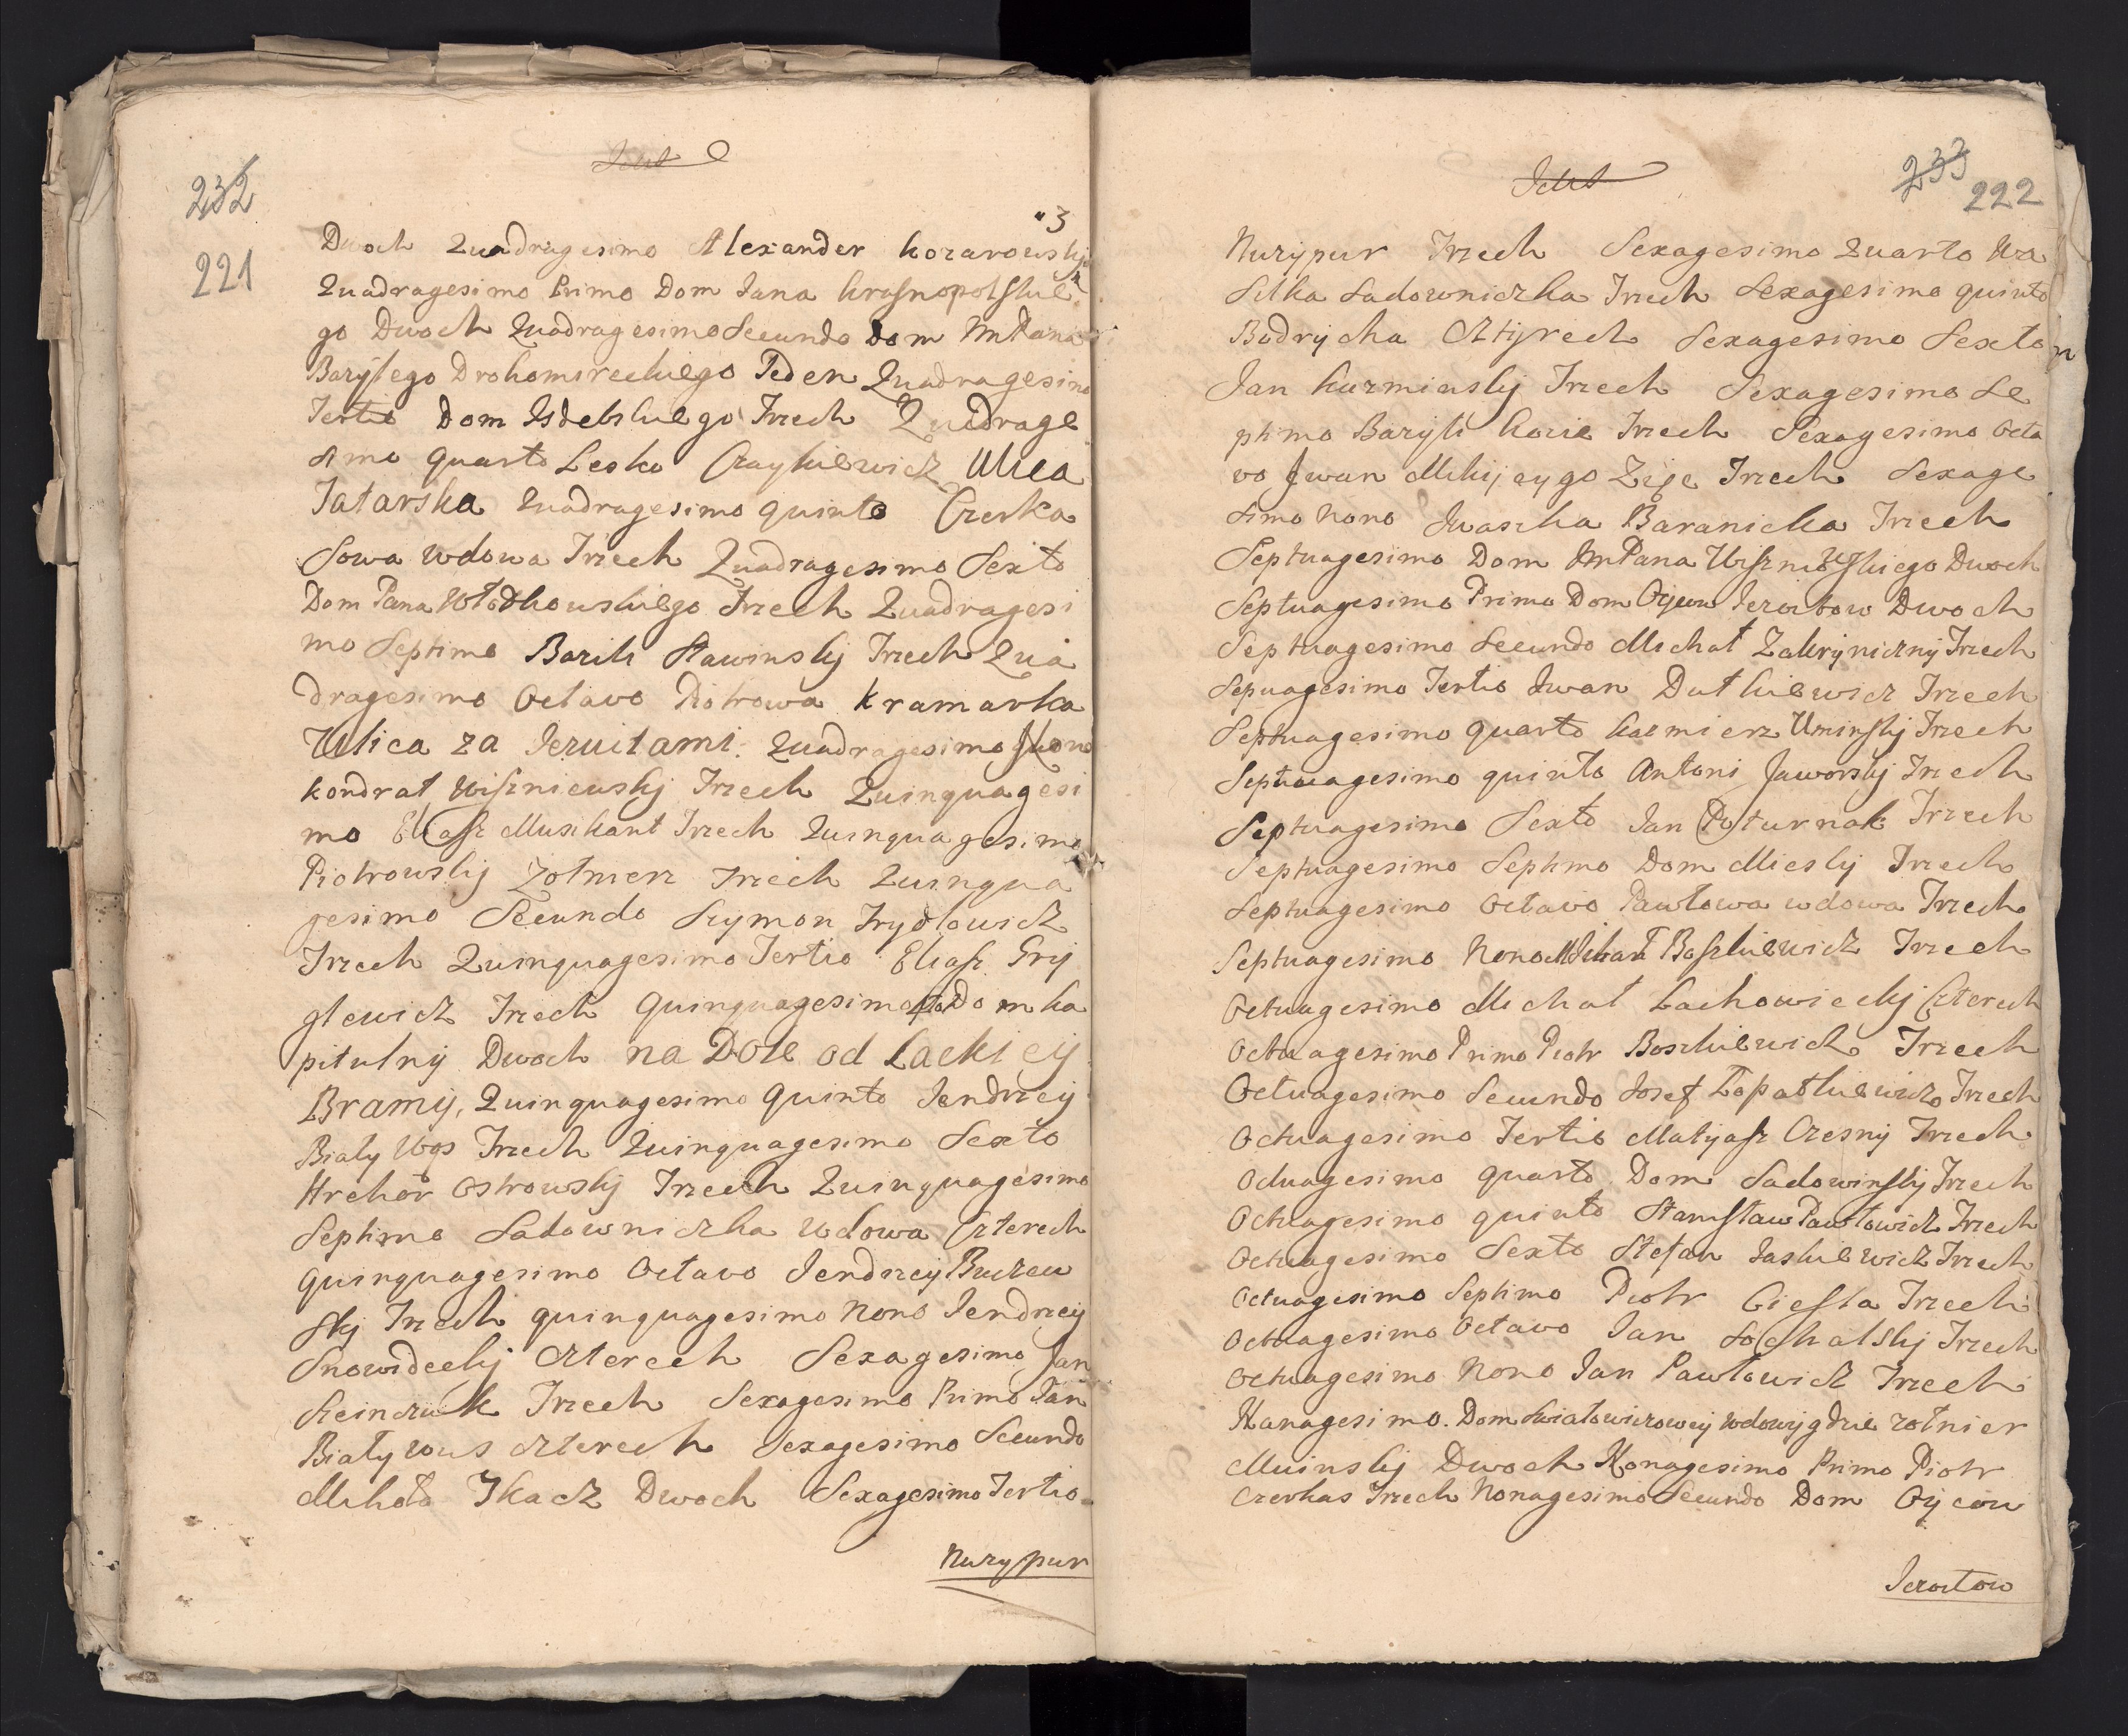 232
221
3
Dwoch Quadragesimo Alexander Kozarowskj
Quadragesimo Primo Dom Jana Krasnopolskie
go Dwoch Quadragesimo Secundo Dom JmPana
Bazylego Drohomireckiego Jeden Quadragesimo
Tertio Dom Isdebskiego Trzech Quadrage
simo quarto Lesko Czaykiewicz Ulica
Tatarska Quadragesimo quinto Czerka
sowa wdowa Trzech Quadragesimo Sexto
Dom Pana Trzech Quadragesi
mo Septimo Bazili Stawinskj Trzech Qua
dragesimo Octavo Piotrowa kramarka
Ulica za Jezuitami. Quadragesimo Nono
kondrat Wiszniewskj Trzech Quinquagesi
mo Eliasz Musikant Trzech Quinquagesimo
Piotrowskj Zołnierz Trzech Quinqua
gesimo Secundo Szymon Trydlowicz
Trzech Quinquagesimo Tertio Eliasz Gry
glewicz Trzech Quinquagesimo 4to Dom ka
pitulny Dwoch na Dole od Lackiey
Bramy, Quinquagesimo Quinto Jendrzey
Biały Wąs Trzech Quinquagesimo Sexto
Hrehor Ostrowskj Trzech Quinquagesimo
Septimo Sadowniczka wdowa Czterech
quinquagesimo Octavo Jendrzey Buczew
skj Trzech quinquagesimo Nono Jendrzey
Snowideckj czterech Sexagesimo Jan
Steinczuk Trzech Sexagesimo Primo Jan
Białywus czterech Sexagesimo Secundo
Mihało Tkacz Dwoch Sexagesimo Tertio
Nurypur
233
222
Nurypur Trzech Sexagesimo Quarto Wa
silka Sadowniczka Trzech Sexagesimo quinto
Bodrycha Cztyrech Sexagesimo Sexto
Jan Kuzminskj Trzech Sexagesimo Se
ptimo Bazyli Kozie Trzech Sexagesimo Octa
vo Jwan Mikijeygo Zięc Trzech Sexage
simo Nono Jwaszka Baranicka Trzech
Septuagesimo Dom JmPana Wiszniowskiego Dwoch
Septuagesimo Primo Dom Oycow Jezuitow Dwoch
Septuagesimo Secundo Michał Zakryniczny Trzech
Sepuagesimo Tertio Jwan Dutkiewicz Trzech
Septuagesimo quarto Kazmierz Uminskj Trzech
Septuagesimo quinto Antoni Jaworskj Trzech
Septuagesimo Sexto Jan Poturnak Trzech
Septuagesimo Septimo Dom Mieskj Trzech
Septuagesimo Octavo Pawłowa wdowa Trzech
Septuagesimo Nono Michał Boszkiewicz Trzech
Octuagesimo Michał Lachowieckj Czterech
Octuagesimo Primo Piotr Boszkiewicz Trzech
Octuagesimo Secundo Josef Łopatkiewicz Trzech
Octuagesimo Tertio Matyasz Czesny Trzech
Octuagesimo quarto Dom Sadowinskj Trzech
Octuagesimo quinto Stanisław Pawłowicz Trzech
Octuagesimo Sexto Stefan Jaskiewicz Trzech
Octuagesimo Septimo Piotr Ciesla Trzech
Octuagesimo Octavo Jan Sochalskj Trzech
Octuagesimo Nono Jan Pawłowicz Trzech
Nanagesimo. Dom Swiatowiczowey wdowy gdzie zołnier
Muinskj Dwoch Nonagesimo Primo Piotr
Czerkas Trzech Nonagesimo Secundo Dom Oycow
Jezuitow